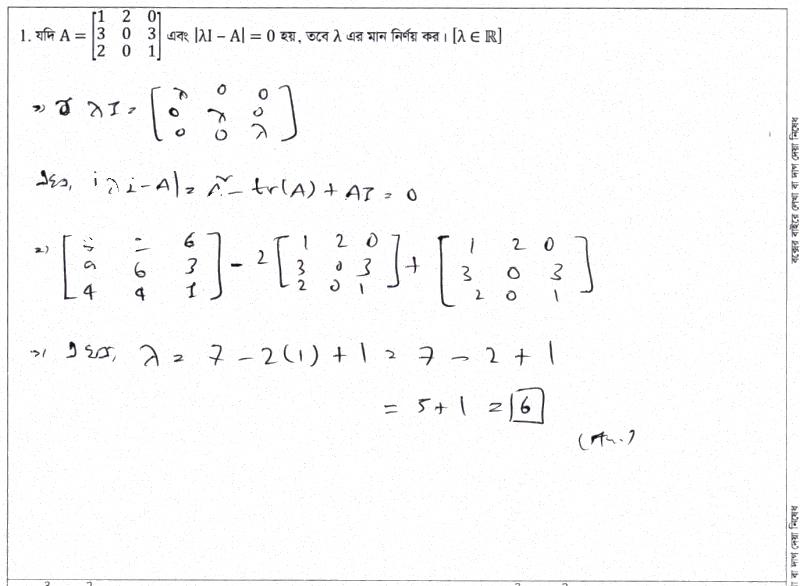 1. যদি A = [1 2 0; 3 0 3; 2 0 1] এবং |λI − A| = 0 হয়, তবে λ এর মান নির্ণয় কর। [λ ∈ ℝ]
λI = [λ 0 0; 0 λ 0; 0 0 λ]
|λI − A| = λ² − tr(A) + AI = 0
[7 2 6; 9 6 3; 4 4 1] − 2 [1 2 0; 3 0 3; 2 0 1] + [1 2 0; 3 0 3; 2 0 1]
λ = 7 − 2(1) + 1 = 7 − 2 + 1
= 5 + 1 = 6
(Ans.)
বক্সের বাইরে লেখা বা দাগ দেয়া নিষেধ
বা দাগ দেয়া নিষেধ